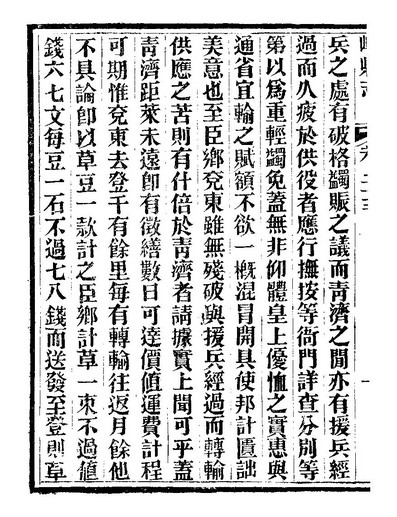 兵之處有破格蠲賑之議而青濟之閒亦有援兵經
過而久疲於供役者應行撫按等衙門詳查分別等
第以爲重輕蠲免蓋無非仰體皇上優恤之實惠與
通省宜輸之賦額不欲一槪混冒開具使邦計匱詘
美意也至臣鄉兗東雖無殘破與援兵經過而轉輸
供應之苦則有什倍於青濟者請據實上聞可乎蓋
青濟距萊未遠卽有徵繕數日可達價値運費計程
可期惟兗東去登千有餘里每有轉輸往返月餘他
不具論卽以草豆一款計之臣鄉計草一束不過値
錢六七文每豆一石不過七八錢而送發至登則草